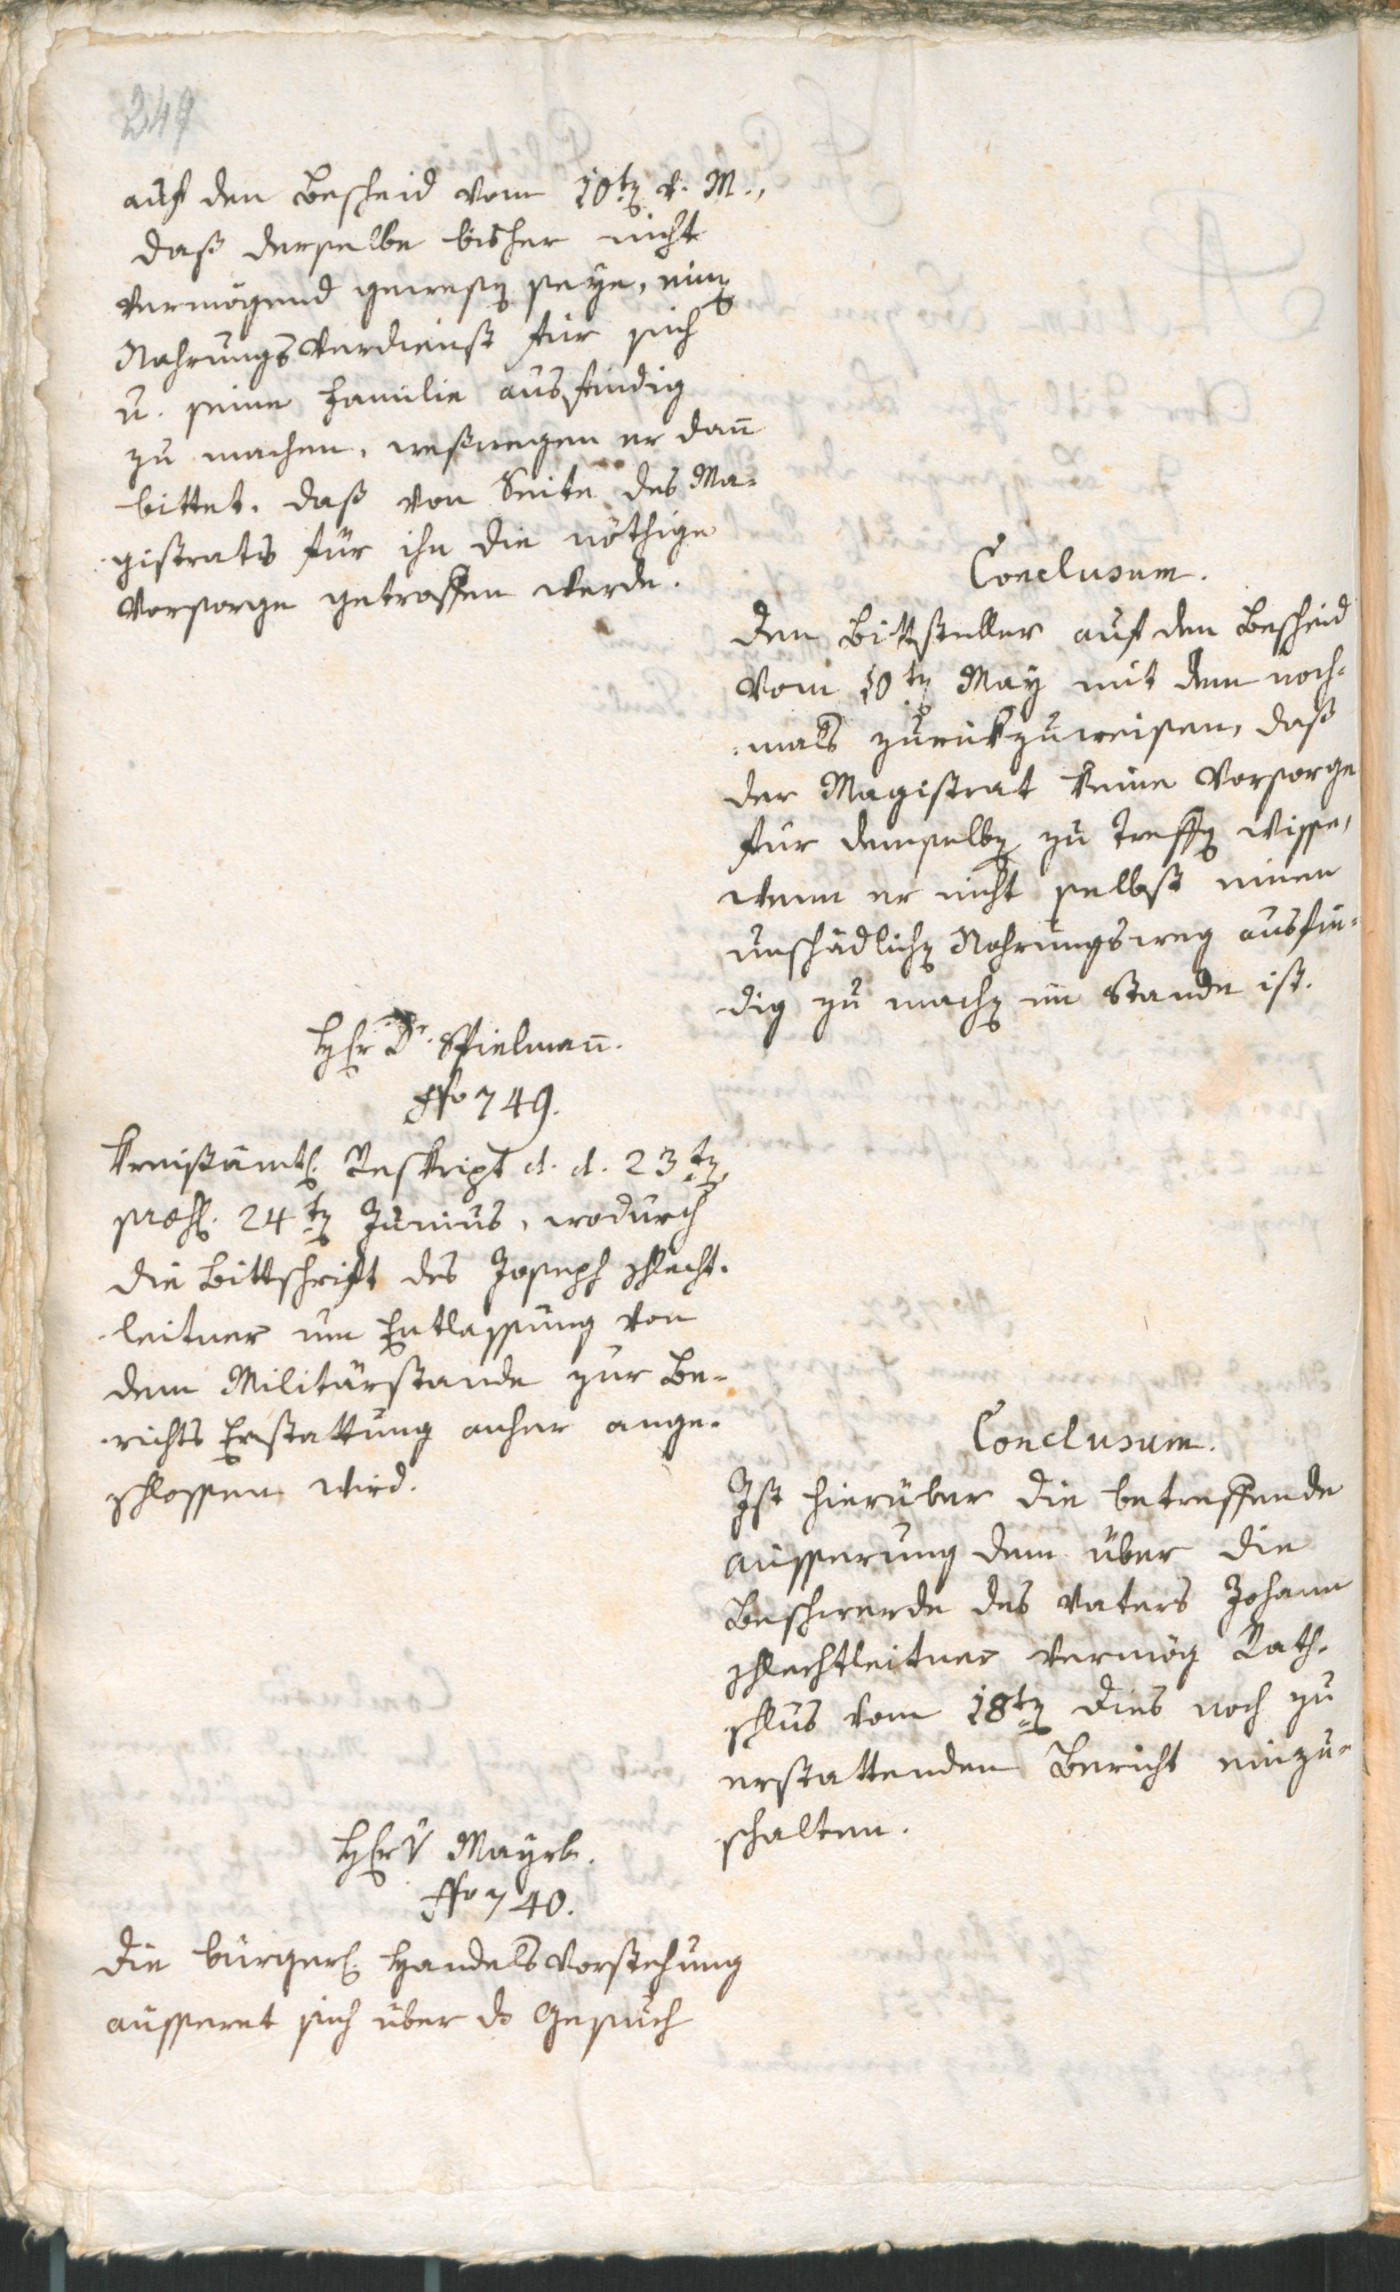 249
auf den Bescheid vom 10ten v. M.,
daß derselbe bisher nicht
vermögend gewesen seye, einen
Nahrungsverdienst für sich
u. seine Familie ausfindig
zu machen, weßwegen er dan̄
bittet, daß von Seite des Ma-
gistrats für ihn die nöthige
Vorsorge getroffen werde.
Conclusum.
Den Bittsteller auf den Bescheid
vom 10ten May mit dem noch-
mals zurückzuweisen, daß
der Magistrat keine Vorsorge
für denselben zu treffen wisse,
wenn er nicht selbst einen
unschädlichen Nahrungsweg ausfin-
dig zu machen im Stande ist.
Hr Dr. Spielman̄.
No 749.
Kreisämtl. Reskript d. d. 23ten,
præs. 24ten Junius, wodurch
die Bittschrift des Joseph Schlecht-
leitner um Entlassung von
dem Militärstande zur Be-
richts Erstattung anher ange-
schlossen wird.
Conclusum.
Ist hierüber die betreffende
äusserung dem über die
Beschwerde des Vaters Johann
Schlechtleitner vermög Rath-
schlus vom 18ten dies noch zu
erstattenden Bericht einzu-
schalten.
Hr v Mayrl.
No 740.
Die bürgerl. Handelsvorstehung
äusseret sich über ds Gesuch